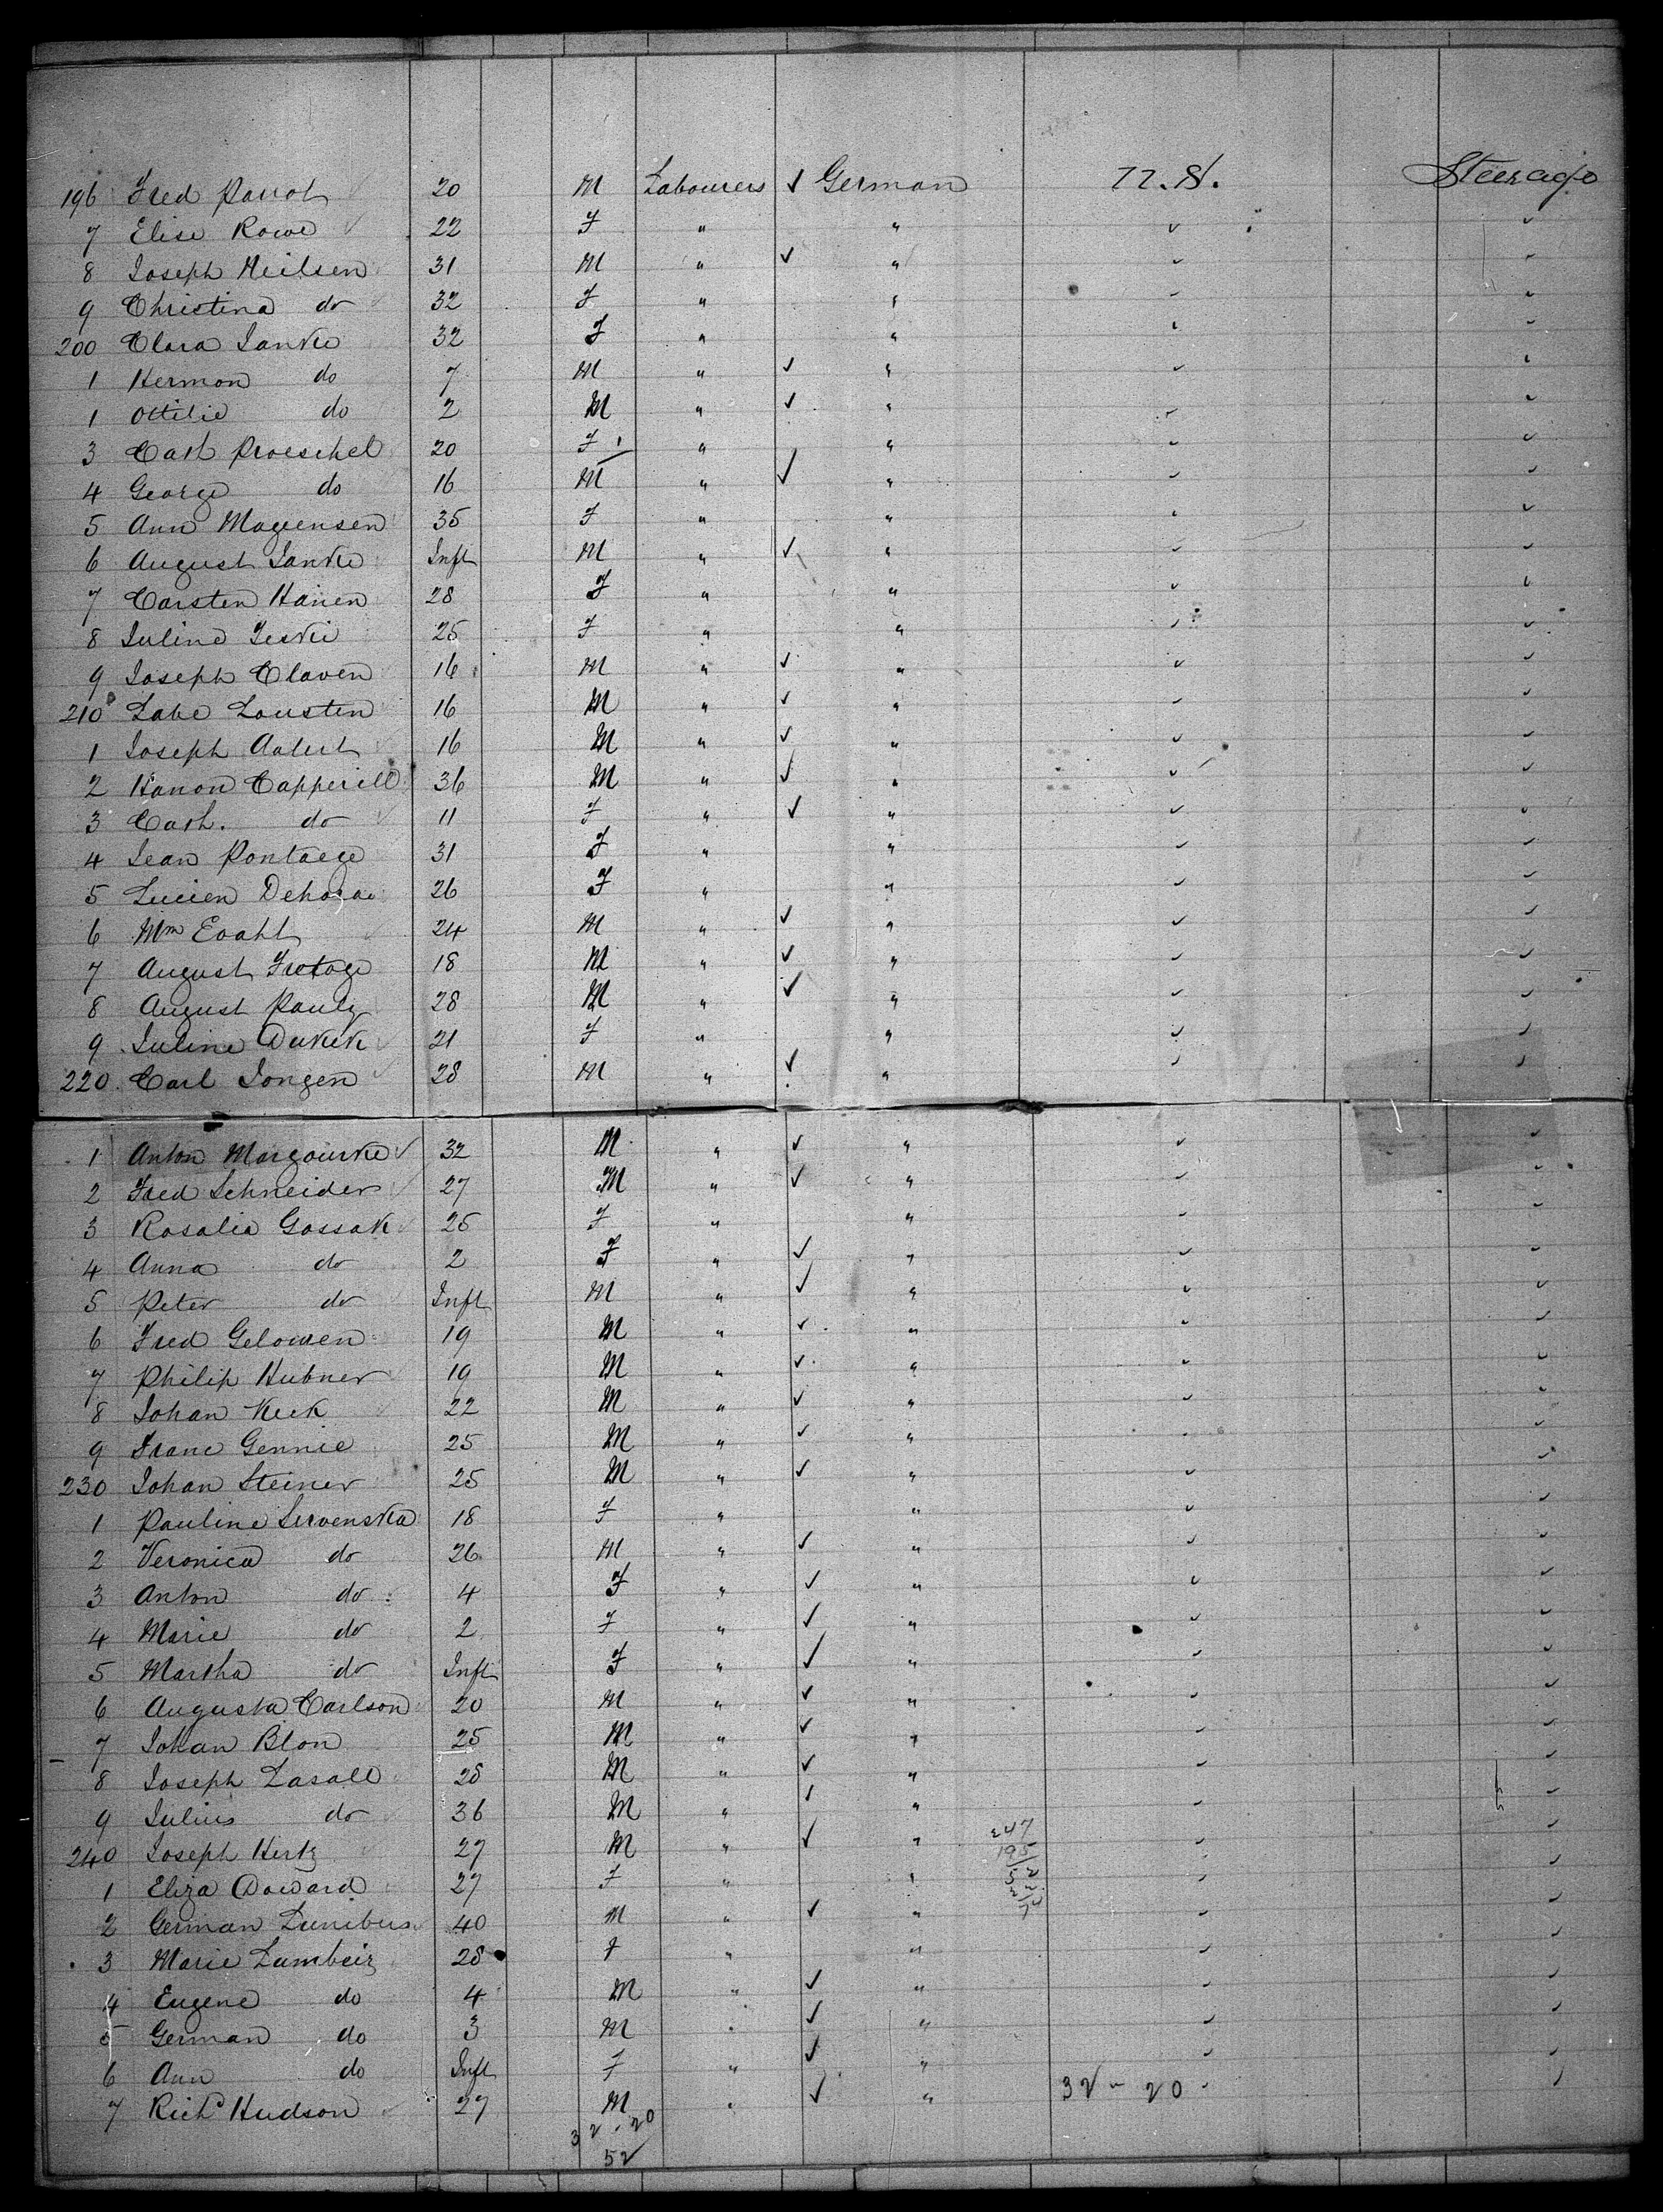 196 Fred Parrot 20 M Labourers ✓ German U.S. Steerage
7 Elise Rowe 22 F " " ✓ ✓
8 Joseph Neilsen 31 M " ✓ " ✓ ✓
9 Christina do 32 F " " ✓ ✓
200 Clara Janke 32 F " " ✓ ✓
1 Hermon do 7 M " ✓ " ✓ ✓
1 Ottilie do 2 M " ✓ " ✓ ✓
3 Cath Proeschel 20 F " " ✓ ✓
4 George do 16 M " ✓ " ✓ ✓
5 Ann Magensen 35 F " " ✓ ✓
6 August Janke Inft M " ✓ " ✓ ✓
7 Carsten Hanen 28 F " " ✓ ✓
8 Juline Jeskie 25 F " " ✓ ✓
9 Joseph Claven 16 M " ✓ " ✓ ✓
210 Labe Lousten 16 M " ✓ " ✓ ✓
1 Joseph 16 M " ✓ " ✓ ✓
2 Hanon Capperill 36 M " ✓ " ✓ ✓
3 Cath. do 11 F " ✓ " ✓ ✓
4 Jean Pontaege 31 F " " ✓ ✓
5 Lucien 26 F " " ✓ ✓
6 Wm Evahl 24 M " ✓ " ✓ ✓
7 August Fretage 18 M " ✓ " ✓ ✓
8 August Pauly 28 M " ✓ " ✓ ✓
9 Juline 21 F " " ✓ ✓
220 Carl Jongen 28 M " ✓ " ✓ ✓
1 Anton Margourke 32 M " ✓ " ✓ ✓
2 Fred Schneider 27 M " ✓ " ✓ ✓
3 Rosalia Gossak 25 F " " ✓ ✓
4 Anna do 2 F " ✓ " ✓ ✓
5 Peter do Inft M " ✓ " ✓ ✓
6 Fred Gelowen 19 M " ✓ " ✓ ✓
7 Philip Hubner 19 M " ✓ " ✓ ✓
8 Johan Keck 22 M " ✓ " ✓ ✓
9 Franc Gennie 25 M " ✓ " ✓
230 Johan Steiner 25 M " ✓ " ✓ ✓
1 Pauline Servenska 18 F " " ✓ ✓
2 Veronica do 26 M " ✓ " ✓ ✓
3 Anton do 4 F " ✓ " ✓ ✓
4 Marie do 2 F " ✓ " ✓ ✓
5 Martha do Inft F " ✓ " ✓ ✓
6 Augusta Carlson 20 M " ✓ " ✓ ✓
7 Johan Blon 25 M " ✓ " ✓ ✓
8 Joseph Lasall 28 M " ✓ " ✓ ✓
9 Julius do 36 M " ✓ " ✓ ✓
240 Joseph Hertz 27 M " ✓ " 247 ✓ ✓
195
1 Eliza Doward 27 F " " 52 ✓ ✓
2 German 40 M " ✓ " ✓ ✓
3 Marie Lambeiz 28 F " " ✓ ✓
4 Eugene do 4 M " ✓ " ✓ ✓
5 German do 3 M " ✓ " ✓ ✓
6 Ann do Inft F " ✓ " ✓ ✓
7 Richd Hudson 27 M " ✓ " 32 - 20 ✓
32 . 20
52